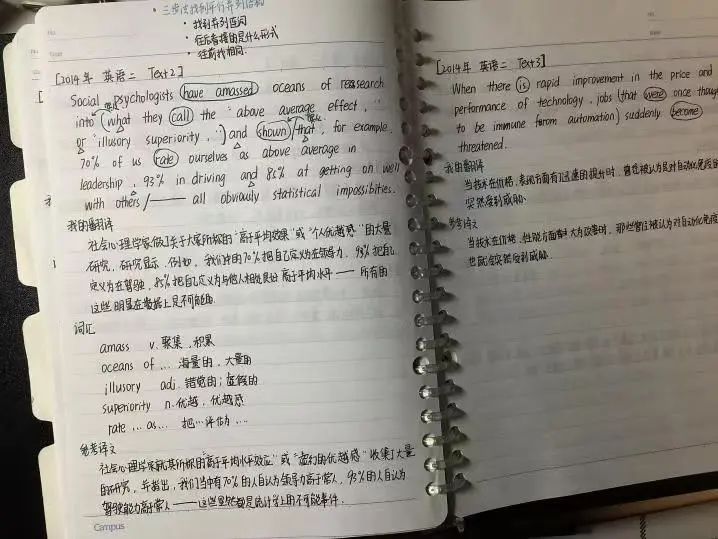 三步法找到平行并列结构
• 找到并列连词
• 在后看接的是什么形式
• 往前找相同
[2014年 英语二 Text2]
Social psychologists have amassed oceans of research
into what they call the "above average effect,"
or "illusory superiority," and shown that, for example,
70% of us rate ourselves as above average in
leadership, 93% in driving and 85% at getting on well
with others —— all obviously statistical impossibities.
我的翻译
社会心理学家做了关于大家所称的"高于平均效果"或"个人优越感"的大量
研究,研究显示,例如,我们中的70%把自己定义为在领导力,93%把自己
定义为在驾驶,85%把自己定义为与他人相处良好高于平均水平 —— 所有的
这些明显在数据上是不可能的.
词汇
amass v. 聚集,积累
oceans of ... 海量的,大量的
illusory adj. 错觉的;虚假的
superiority n. 优越,优越感
rate ... as ... 把…评价为…
参考译文
社会心理学家就其所称的"高于平均水平效应"或"虚幻的优越感"收集了大量
的研究,并指出,我们当中有70%的人自认为领导力高于常人,93%的人自认为
驾驶能力高于常人 —— 这些显然都是统计学上的不可能事件.
Campus
[2014年 英语二 Text3]
When there is rapid improvement in the price and
performance of technology, jobs that were once
to be immune from automation suddenly become
threatened.
我的翻译
当技术在价格,表现方面有迅速的提升时,曾经被认为是对自动化免疫的
突然受到威胁.
参考译文
当技术在价格、性能方面有大为改善时,那些曾被认为对自动化免疫
也就会突然受到威胁.